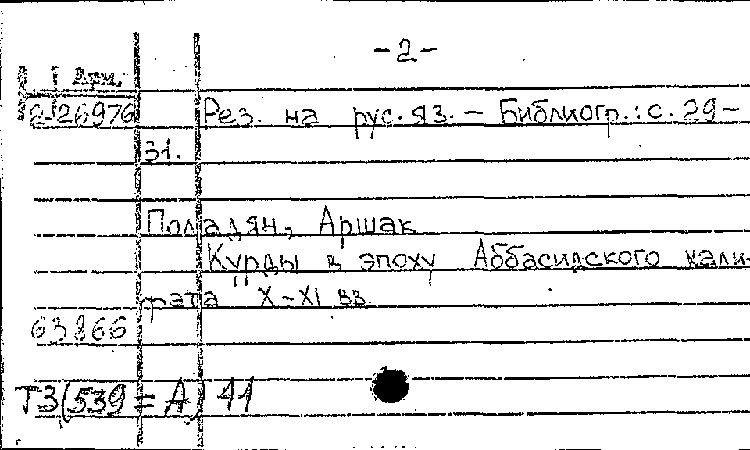 -2-
Арм.
2-26976 Рез. на рус. яз. - Библиогр.: с. 29-
31.
Поладян, Аршак
Курды в эпоху Аббасидского хали-
фата X-XI вв.
63866
Т3(539=А) 41